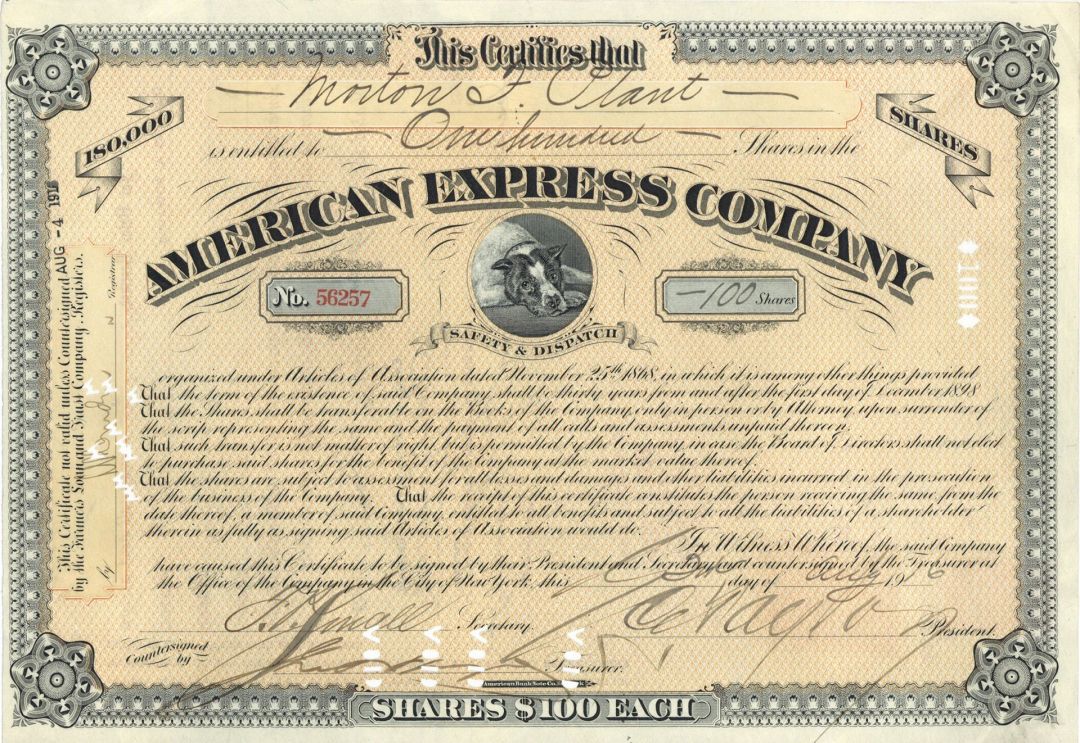 This Certifies that
Morton F. Plant
180,000
SHARES
is entitled to One hundred Shares in the
AMERICAN EXPRESS COMPANY
No. 56257
-100 Shares
SAFETY & DISPATCH
organized under Articles of Association dated November 25th 1868, in which it is among other things provided
That the term of the existence of said Company shall be thirty years from and after the first day of December 1898
That the Shares shall be transferable on the Books of the Company, only in person or by Attorney, upon surrender of
the scrip representing the same and the payment of all calls and assessments unpaid thereon.
That such transfer is not matter of right, but is permitted by the Company, in case the Board of Directors shall not elect
to purchase said shares for the benefit of the Company at the market value thereof.
That the shares are subject to assessment for all losses and damages and other liabilities incurred, in the prosecution
of the business of the Company. That the receipt of this certificate constitutes the person receiving the same, from the
date thereof, a member of said Company, entitled to all benefits and subject to all the liabilities of a shareholder
therein as fully as signing said Articles of Association would do.
In Witness Whereof, the said Company
have caused this Certificate to be signed by their President and Secretary and countersigned by the Treasurer at
the Office of the Company in the City of New York, this day of Aug 1916
Secretary.
President.
Countersigned
by
Treasurer.
American Bank Note Co.
SHARES $100 EACH
This Certificate not valid unless Countersigned AUG -4 1916
by the Farmers Loan and Trust Company, Registers.
by Registrar